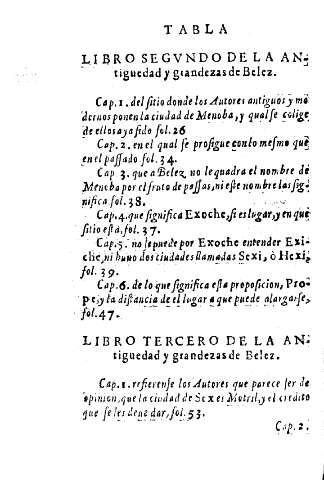 TABLA
LIBRO SEGVNDO DE LA AN-
tiguedad y grandezas de Belez.
Cap. 1. del sitio donde los Autores antiguos y mo
dernos ponen la ciudad de Menoba, y qual se colige
de ellos aya sido fol. 26
Cap. 2. en el qual se prosigue con lo mesmo que
en el passado fol. 34.
Cap 3. que a Belez no le quadra el nombre de
Menoba por el fruto de passas, ni este nombre las sig-
nifica fol. 38.
Cap. 4. que significa Exoche, si es lugar, y en que
sitio està, fol. 37.
Cap. 5. no se puede por Exoche entender Exi-
che, ni huuo dos ciudades llamadas Sexi, ò Hexi,
fol. 39.
Cap. 6. de lo que significa esta proposicion, Pro-
pe, y la distancia de el lugar a que puede alargarse,
fol. 47.
LIBRO TERCERO DE LA AN-
tiguedad y grandezas de Belez.
Cap. 1. refierense los Autores que parece ser de
opinion, que la ciudad de Sex es Motril, y el credito
que se les deue dar, fol. 53.
Cap. 2.